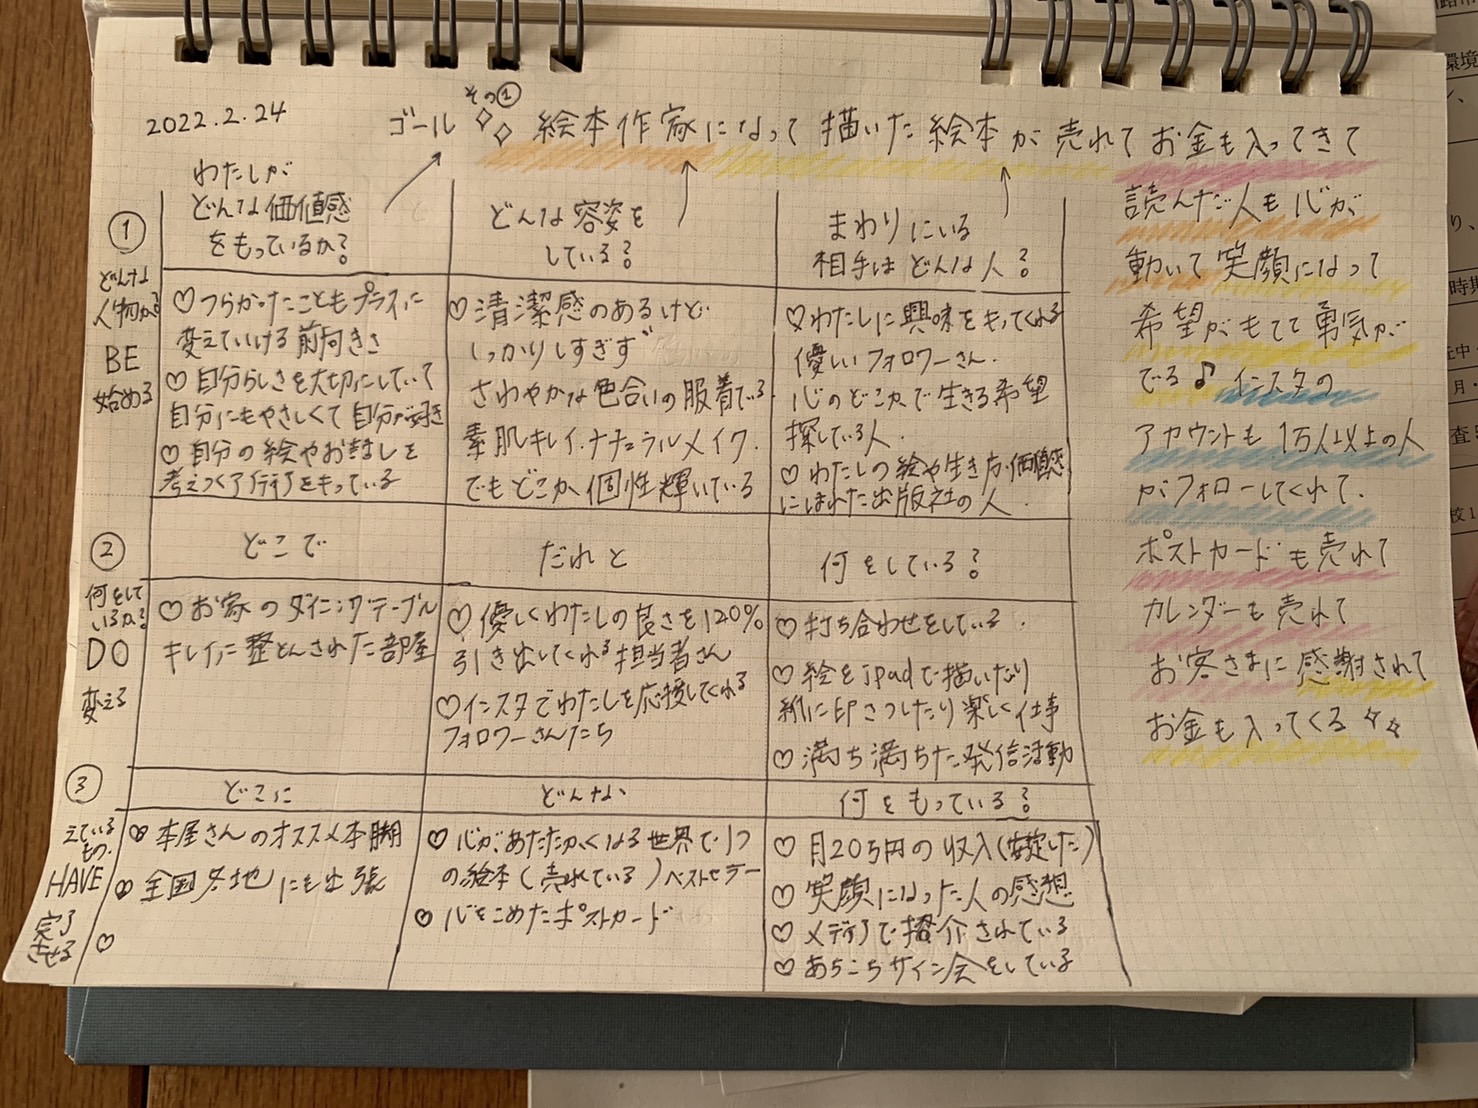 2022.2.24
その①
ゴール 絵本作家になって 描いた絵本が 売れて お金も入ってきて
読んだ人も心が
動いて 笑顔になって
希望がもてて 勇気が
でる♪ インスタの
アカウントも 1万人以上の人
がフォローしてくれて、
ポストカードも売れて
カレンダーも売れて
お客さまに感謝されて
お金も入ってくる
①
どんな
人物か?
BE
始める
わたしが
どんな価値感
をもっているか?
♡つらかったこともプラスに
変えていける前向きさ
♡自分らしさを大切にしていて
自分にもやさしくて自分が好き
♡自分の絵やお話しを
考えつくアイディアをもっている
どんな容姿を
している?
♡清潔感のあるけど
しっかりしすぎず
さわやかな色合いの服着てる
素肌キレイ.ナチュラルメイク.
でもどこか個性輝いている
まわりにいる
相手はどんな人?
♡わたしに興味をもってくれる
優しいフォロワーさん.
心のどこかで生きる希望
探している人.
♡わたしの絵や生き方・価値感
にほれた出版社の人.
②
何をして
いるか?
DO
変える
どこで
♡お家のダイニングテーブル
キレイに整とんされた部屋
だれと
♡優しくわたしの良さを120%
引き出してくれる担当者さん
♡インスタでわたしを応援してくれる
フォロワーさんたち
何をしている?
♡打ち合わせをしている.
♡絵をipadで描いたり
紙に印さつしたり楽しく仕事
♡満ち満ちた発信活動
③
えている
もの.
HAVE
完了
させる
どこに
♡本屋さんのオススメ本棚
♡全国各地にも出張
♡
どんな
♡心があたたかくなる世界で1つ
の絵本(売れている)ベストセラー
♡心をこめたポストカード
何をもっている?
♡月20万円の収入(安定した)
♡笑顔になった人の感想
♡メディアで紹介されている
♡あちこちサイン会をしている